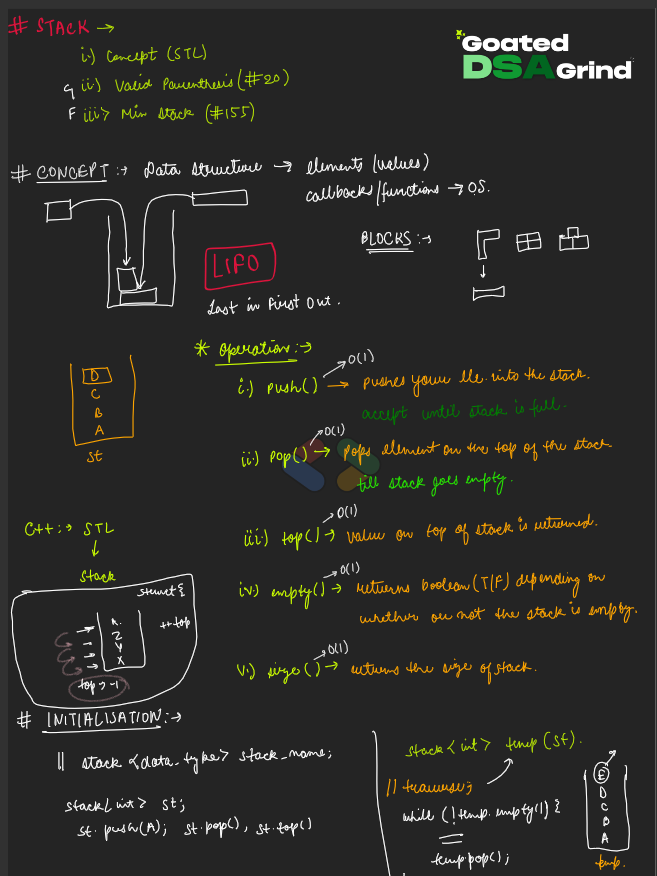 # STACK →
i.) Concept (STL)
G ii) Valid Parenthesis (#20)
F iii> Min Stack (#155)
Goated
DSA Grind
# CONCEPT :→ Data structure → elements (values)
callbacks/functions → OS.
BLOCKS :→
LIFO
Last in First Out.
* Operation :→
i.) push() → pushes your ele. into the stack.
O(1)
accept until stack is full.
ii.) pop() → Pops element on the top of the stack
O(1)
till stack goes empty.
iii.) top() → value on top of stack is returned.
O(1)
iv.) empty() → returns boolean (T/F) depending on
O(1)
whether or not the stack is empty.
v.) size() → returns the size of stack.
O(1)
D
C
B
A
st
C++ :→ STL
↓
Stack
struct {
Z
Y
X
++top
top = -1
# INITIALISATION :→
|| stack <data_type> stack_name;
stack<int> st;
st.push(A); st.pop(), st.top()
stack<int> temp (st).
|| traverse;
while (!temp.empty()) {
temp.pop();
E
D
C
B
A
temp.